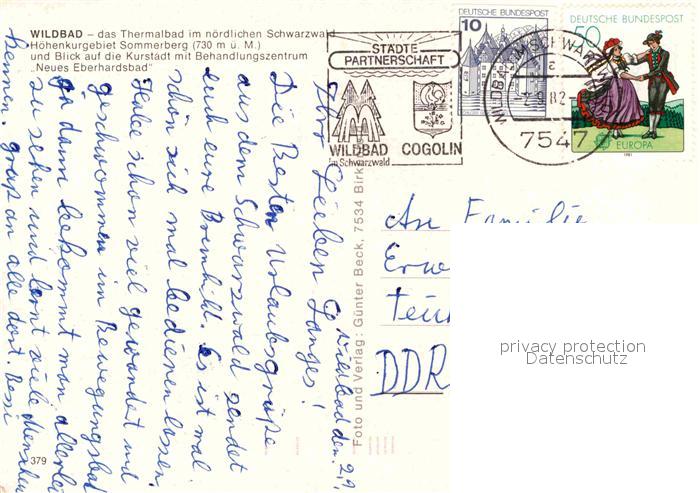 WILDBAD – das Thermalbad im nördlichen Schwarzwald
Höhenkurgebiet Sommerberg (730 m ü. M.)
und Blick auf die Kurstadt mit Behandlungszentrum
„Neues Eberhardsbad"
STÄDTE
PARTNERSCHAFT
WILDBAD COGOLIN
im Schwarzwald
10
DEUTSCHE BUNDESPOST
DEUTSCHE BUNDESPOST
50
EUROPA
1981
WILDBAD IM SCHWARZWALD
7547
Wildbad den 2.9.
Ihr Lieben
Die Besten Urlaubsgrüße
aus dem Schwarzwald sendet
euch eine Brunhild. Es ist mal
schön sich mal bedienen lassen.
Habe schon viel gewandert und
geschwommen im Bewegungsbad
ja dann bekommt man allerlei
zu sehen und lernt viele Menschen
kennen. Gruß an alle dort.
Foto und Verlag: Günter Beck, 7534 Birk
An Familie
Erw
DDR
privacy protection
Datenschutz
379